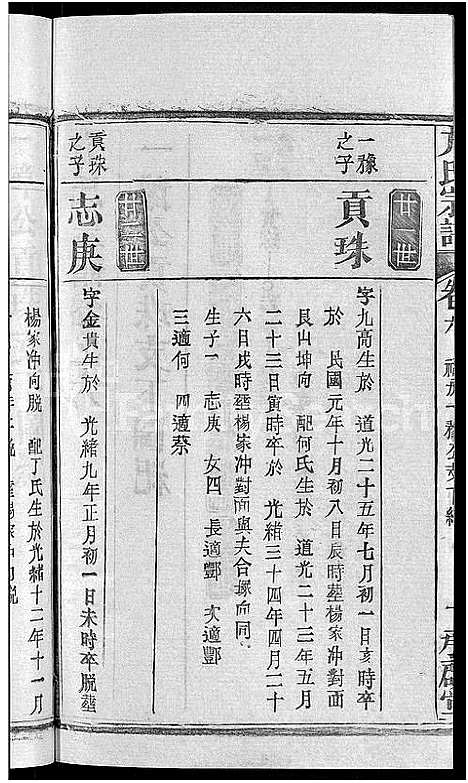 一豫之子
廿一世
貢珠
字九高生於 道光二十五年七月初一日亥時卒
於 民國元年十月初八日辰時塟楊家冲對面
艮山坤向 配何氏生於 道光二十三年五月
二十三日寅時卒於 光緒三十四年四月二十
六日戌時塟楊家冲對面與夫合塚向同
生子一 志庚 女四 長適酆 次適酆
三適何 四適蔡
貢珠之子
廿二世
志庚
字金貴生於 光緒九年正月初一日未時卒脱塟
楊家冲向脱 配丁氏生於光緒十二年十一月